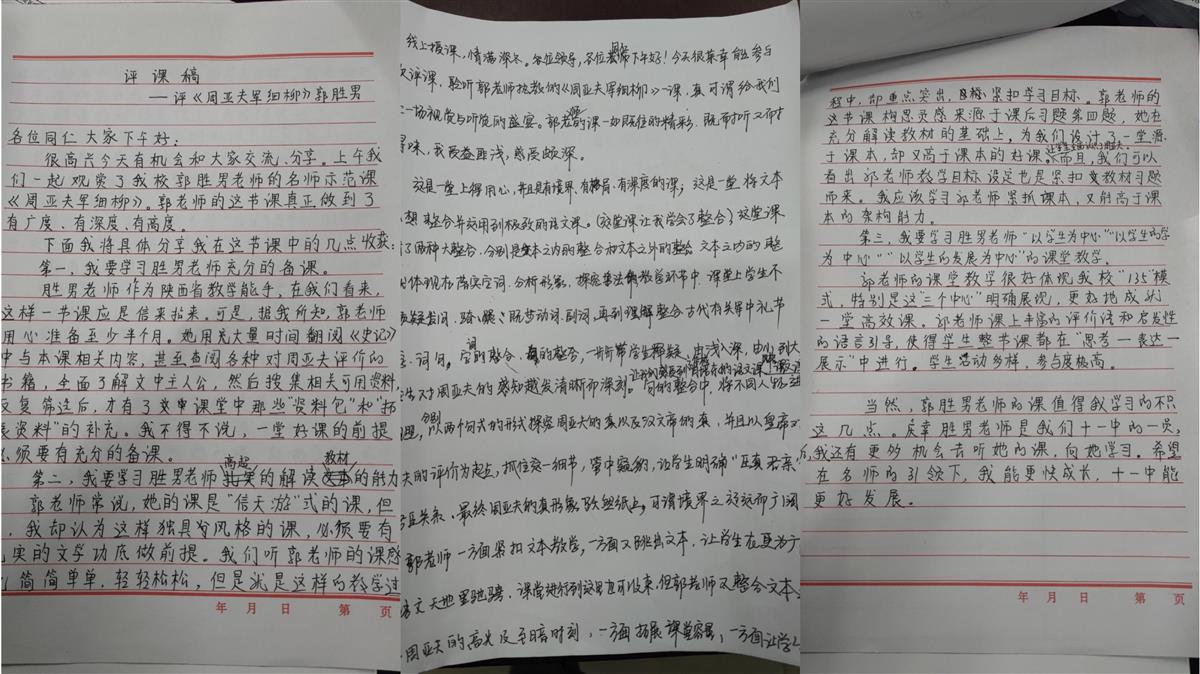 评课稿
——评《周亚夫军细柳》郭胜男
各位同仁 大家下午好：
很高兴今天有机会和大家交流、分享。上午我
们一起观赏了我校郭胜男老师的名师示范课
《周亚夫军细柳》。郭老师的这节课真正做到了
有广度、有深度、有高度。
下面我将具体分享我在这节课中的几点收获：
第一，我要学习胜男老师充分的备课。
胜男老师作为陕西省教学能手，在我们看来，
这样一节课应是信手拈来。可是，据我所知，郭老师
用心准备至少半个月。她用充大量时间翻阅《史记》
中与本课相关内容，甚至查阅各种对周亚夫评价的
书籍，全面了解文中主人公，然后搜集相关可用资料，
反复筛选后，才有了课堂中那些"资料包"和"拓
展资料"的补充。我不得不说，一堂好课的前提
必须要有充分的备课。
第二，我要学习胜男老师高超的解读教材的能力
郭老师常说，她的课是"信天游"式的课，但
，我却认为这样独具风格的课，必须要有
扎实的文学功底做前提。我们听郭老师的课感
简简单单，轻轻松松，但是就是这样的教学过
年 月 日 第 页
线上授课，情满深冬。各位领导，各位老师下午好！今天很荣幸能参与
次评课，聆听郭老师执教的《周亚夫军细柳》一课，真可谓给我们
一场视觉与听觉的盛宴。郭老师的课一如既往的精彩，既而听又而
味，我受益匪浅，感受颇深。
这是一堂上得用心，并且是有境界、有格局、有深度的课；这是一堂将文本
想整合并交用到极致的语文课。（这堂课让我学会了整合）这堂课
了两种大整合，分别是文本之内的整合和文本之外的整合。文本之内的整
体现在落实字词、分析形象、探究写法的教学环节中，课堂上学生不
疑难词，
词、词句。字的整合、词的整合，一步步带学生释疑，由浅入深，由小到大
生对周亚夫的感知越发清晰而深刻。句的整合中，将不同人
，分别以两个句式的形式探究周亚夫的真以及汉文帝的真，并且以皇帝对
夫的评价为起点，抓住这一细节，管中窥豹，让学生明确
君臣关系，最终周亚夫的真形象跃然纸上，可谓境界之
郭老师一方面紧扣文本教学，一方面又跳出文本，让学生在更为广
语文天地里驰骋。课堂进行到这里也可收束，但郭老师又整合文本
周亚夫的高光及至暗时刻，一方面拓展课堂容量，一方面让学生
程中，却重点突出，紧扣学习目标。郭老师的
这节课构思灵感来源于课后习题第四题，她在
充分解读教材的基础上，为我们设计了一堂源
于课本，却又高于课本的好课。而且，我们可以
看出郭老师教学目标设定也是紧扣教材习题
而来。我应该学习郭老师紧抓课本，又能高于课
本的架构能力。
第三，我要学习胜男老师"以学生为中心""以学生的学
为中心""以学生的发展为中心"的课堂教学。
郭老师的课堂教学很好体现我校"135"模
式，特别是这"三个中心"明确展现，更好地成就
一堂高效课。郭老师课上丰富的评价语和启发性
的语言引导，使得学生整节课都在"思考—表达—
展示"中进行。学生活动多样，参与度极高。
当然，郭胜男老师的课值得我学习的不只
这几点。庆幸胜男老师是我们十一中的一员，
后我还有更多机会去听她的课，向她学习。希望
在名师的引领下，我能更快成长，十一中能
更好发展。
年 月 日 第 页